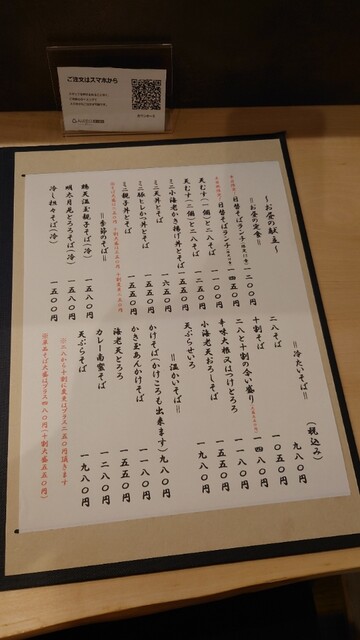 ご注文はスマホから
～お昼の献立～
＝お昼の定食＝
日替そばランチ
一二〇〇円
日替そばランチ
一四五〇円
天むす(一個)と二八そば
一二〇〇円
天むす(二個)と二八そば
一五〇〇円
ミニ小海老かき揚げ丼とそば
一六五〇円
ミニ天丼とそば
一五五〇円
ミニ豚ヒレかつ丼とそば
一五五〇円
ミニ親子丼とそば
一五五〇円
＝季節のそば＝
鶏天温玉親子そば(冷)
一五八〇円
明太月見とろろそば(冷)
一五八〇円
冷し担々そば(冷)
一五〇〇円
(税込み)
＝冷たいそば＝
二八そば
九八〇円
十割そば
一〇五〇円
二八と十割の合い盛り
一四八〇円
辛味大根又はつけとろろ
一二五〇円
小海老天おろしそば
一五五〇円
天ぷらせいろ
一九八〇円
＝温かいそば＝
かけそば(かけころも出来ます)
九八〇円
かき玉あんかけそば
一一八〇円
海老天とろろ
一五五〇円
カレー南蛮そば
一二八〇円
天ぷらそば
一九八〇円
※二八から十割に変更はプラス二五〇円頂きます